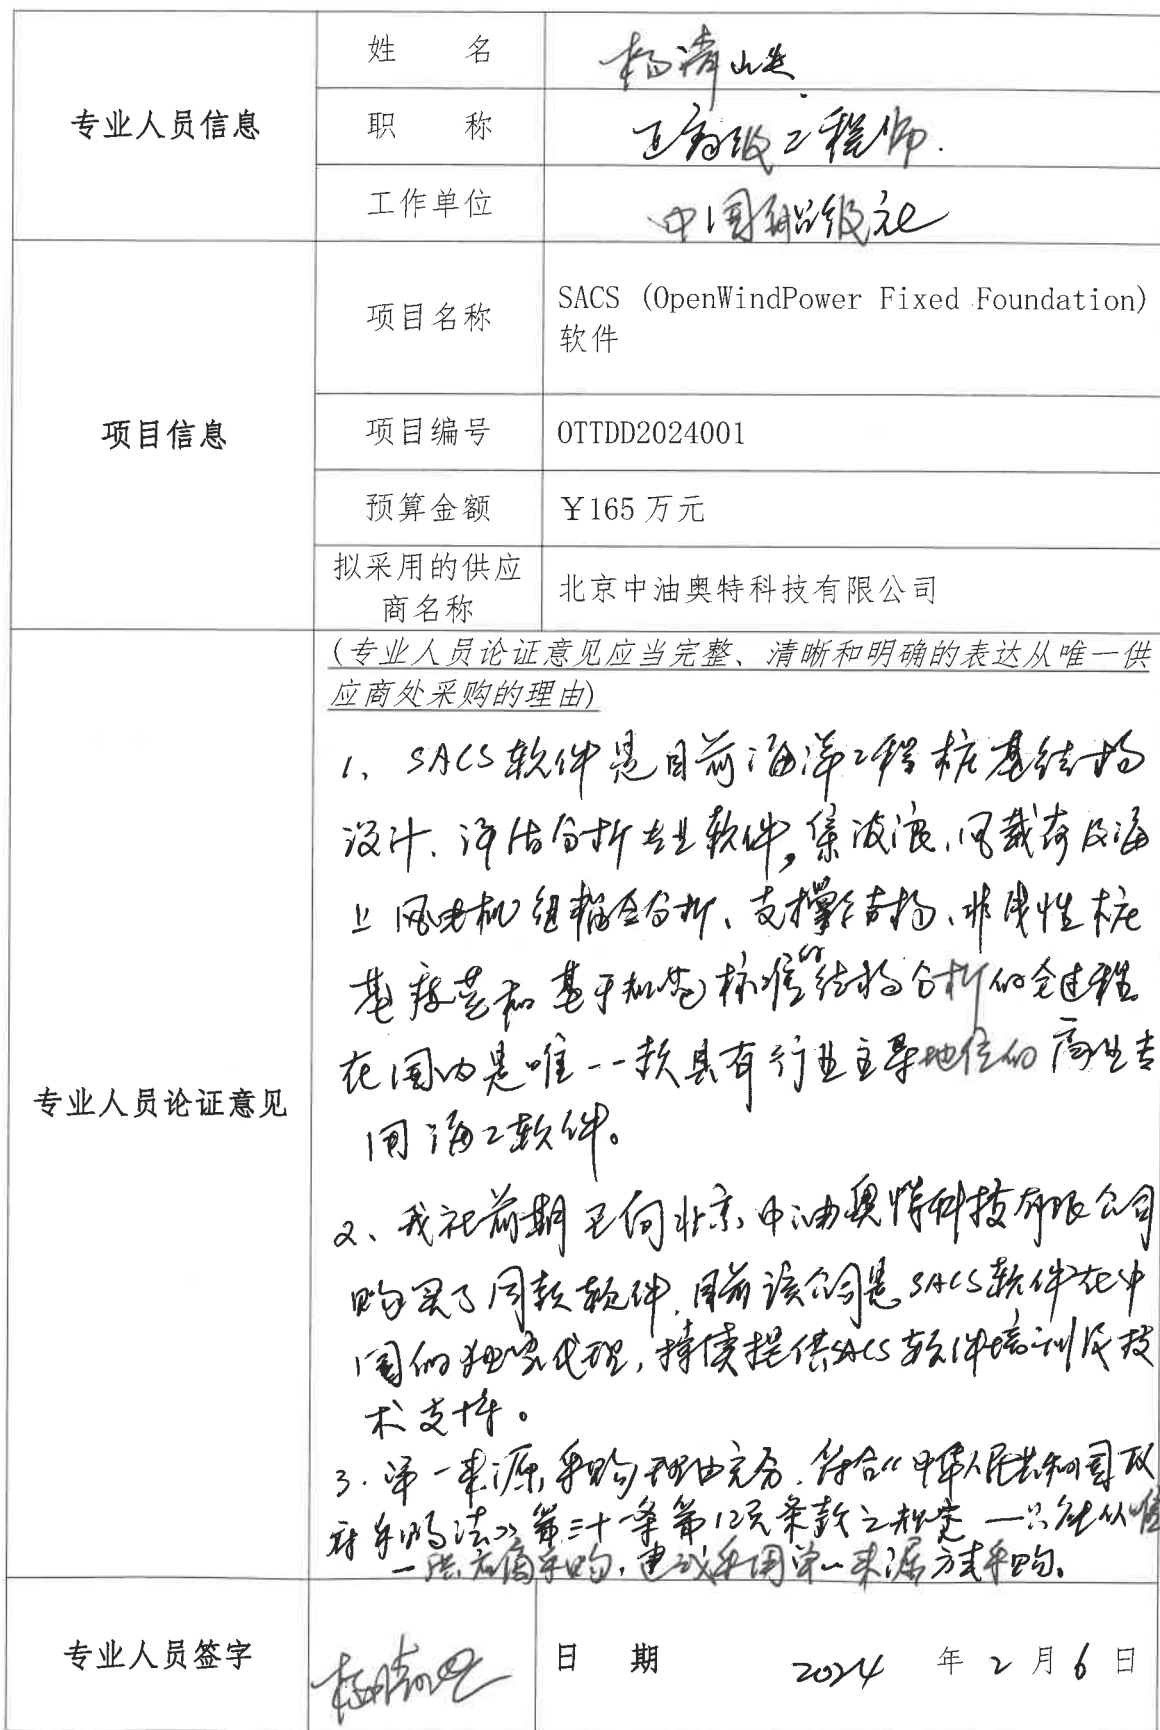 专业人员信息
姓 名
杨清
职 称
正高级工程师.
工作单位
中国船级社
项目信息
项目名称
SACS (OpenWindPower Fixed Foundation)
软件
项目编号
OTTDD2024001
预算金额
￥165万元
拟采用的供应
商名称
北京中油奥特科技有限公司
专业人员论证意见
(专业人员论证意见应当完整、清晰和明确的表达从唯一供
应商处采购的理由)
1、SACS软件是目前海洋工程桩基结构
设计、评估分析专业软件,集波浪、风载荷及海
上风电机组耦合分析、支撑结构、非线性桩
基和基于规范标准的结构分析的全过程
在国内是唯一一款具有行业主导地位的商业专
用海工软件。
2、我社前期已向北京中油奥特科技有限公司
购买了同款软件,目前该公司是SACS软件在中
国的独家代理,持续提供SACS软件培训及技
术支持。
3.单一来源采购理由充分,符合《中华人民共和国政
府采购法》第三十一条第款之规定一只能从唯
一供应商采购,建议采用单一来源方式采购。
专业人员签字
日 期
2024 年 2 月 6 日